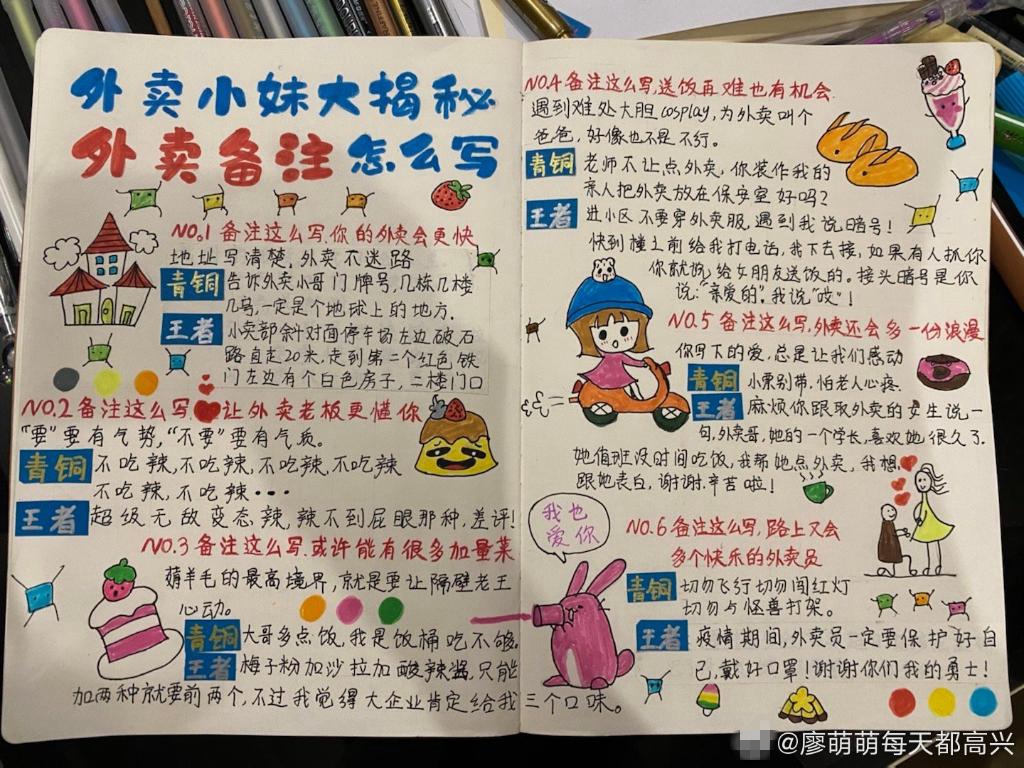 外卖小妹大揭秘
外卖备注怎么写
NO.1 备注这么写,你的外卖会更快
地址写清楚,外卖不迷路
青铜 告诉外卖小哥门牌号,几栋几楼
几鸟,一定是个地球上的地方.
王者 小卖部斜对面停车场左边破石
路直走20米,走到第二个红色铁
门左边有个白色房子,二楼门口
NO.2 备注这么写 让外卖老板更懂你
“要”要有气势,“不要”要有气质。
青铜 不吃辣,不吃辣,不吃辣,不吃辣
不吃辣,不吃辣•••
王者 超级无敌变态辣,辣不到屁眼那种,差评!
NO.3 备注这么写.或许能有很多加量菜
薅羊毛的最高境界,就是要让隔壁老王
心动。
青铜 大哥多点饭,我是饭桶吃不够。
王者 梅子粉加沙拉加酸辣酱,只能
加两种就要前两个,不过我觉得大企业肯定给我三个口味。
NO.4 备注这么写,送饭再难也有机会.
遇到难处大胆cosplay,为外卖叫个
爸爸,好像也不是不行.
青铜 老师不让点外卖,你装作我的
亲人把外卖放在保安室好吗?
王者 进小区不要穿外卖服,遇到我说暗号!
快到楼上前给我打电话,我下去接,如果有人抓你
你就说,给女朋友送饭的。接头暗号是你
说:“亲爱的”.我说“哎”!
NO.5 备注这么写,外卖还会多一份浪漫
你写下的爱,总是让我们感动
青铜 小票别带,怕老人心疼.
王者 麻烦你跟取外卖的女生说,一
句,外卖哥,她的一个学长,喜欢她很久了.
她值班没时间吃饭,我帮她点外卖,我想,
跟她表白,谢谢.辛苦啦!
我也
爱你
NO.6 备注这么写,路上又会
多个快乐的外卖员
青铜 切勿飞行切勿闯红灯
切勿与怪兽打架。
王者 疫情期间,外卖员一定要保护好自
己,戴好口罩!谢谢你们我的勇士!
@廖萌萌每天都高兴